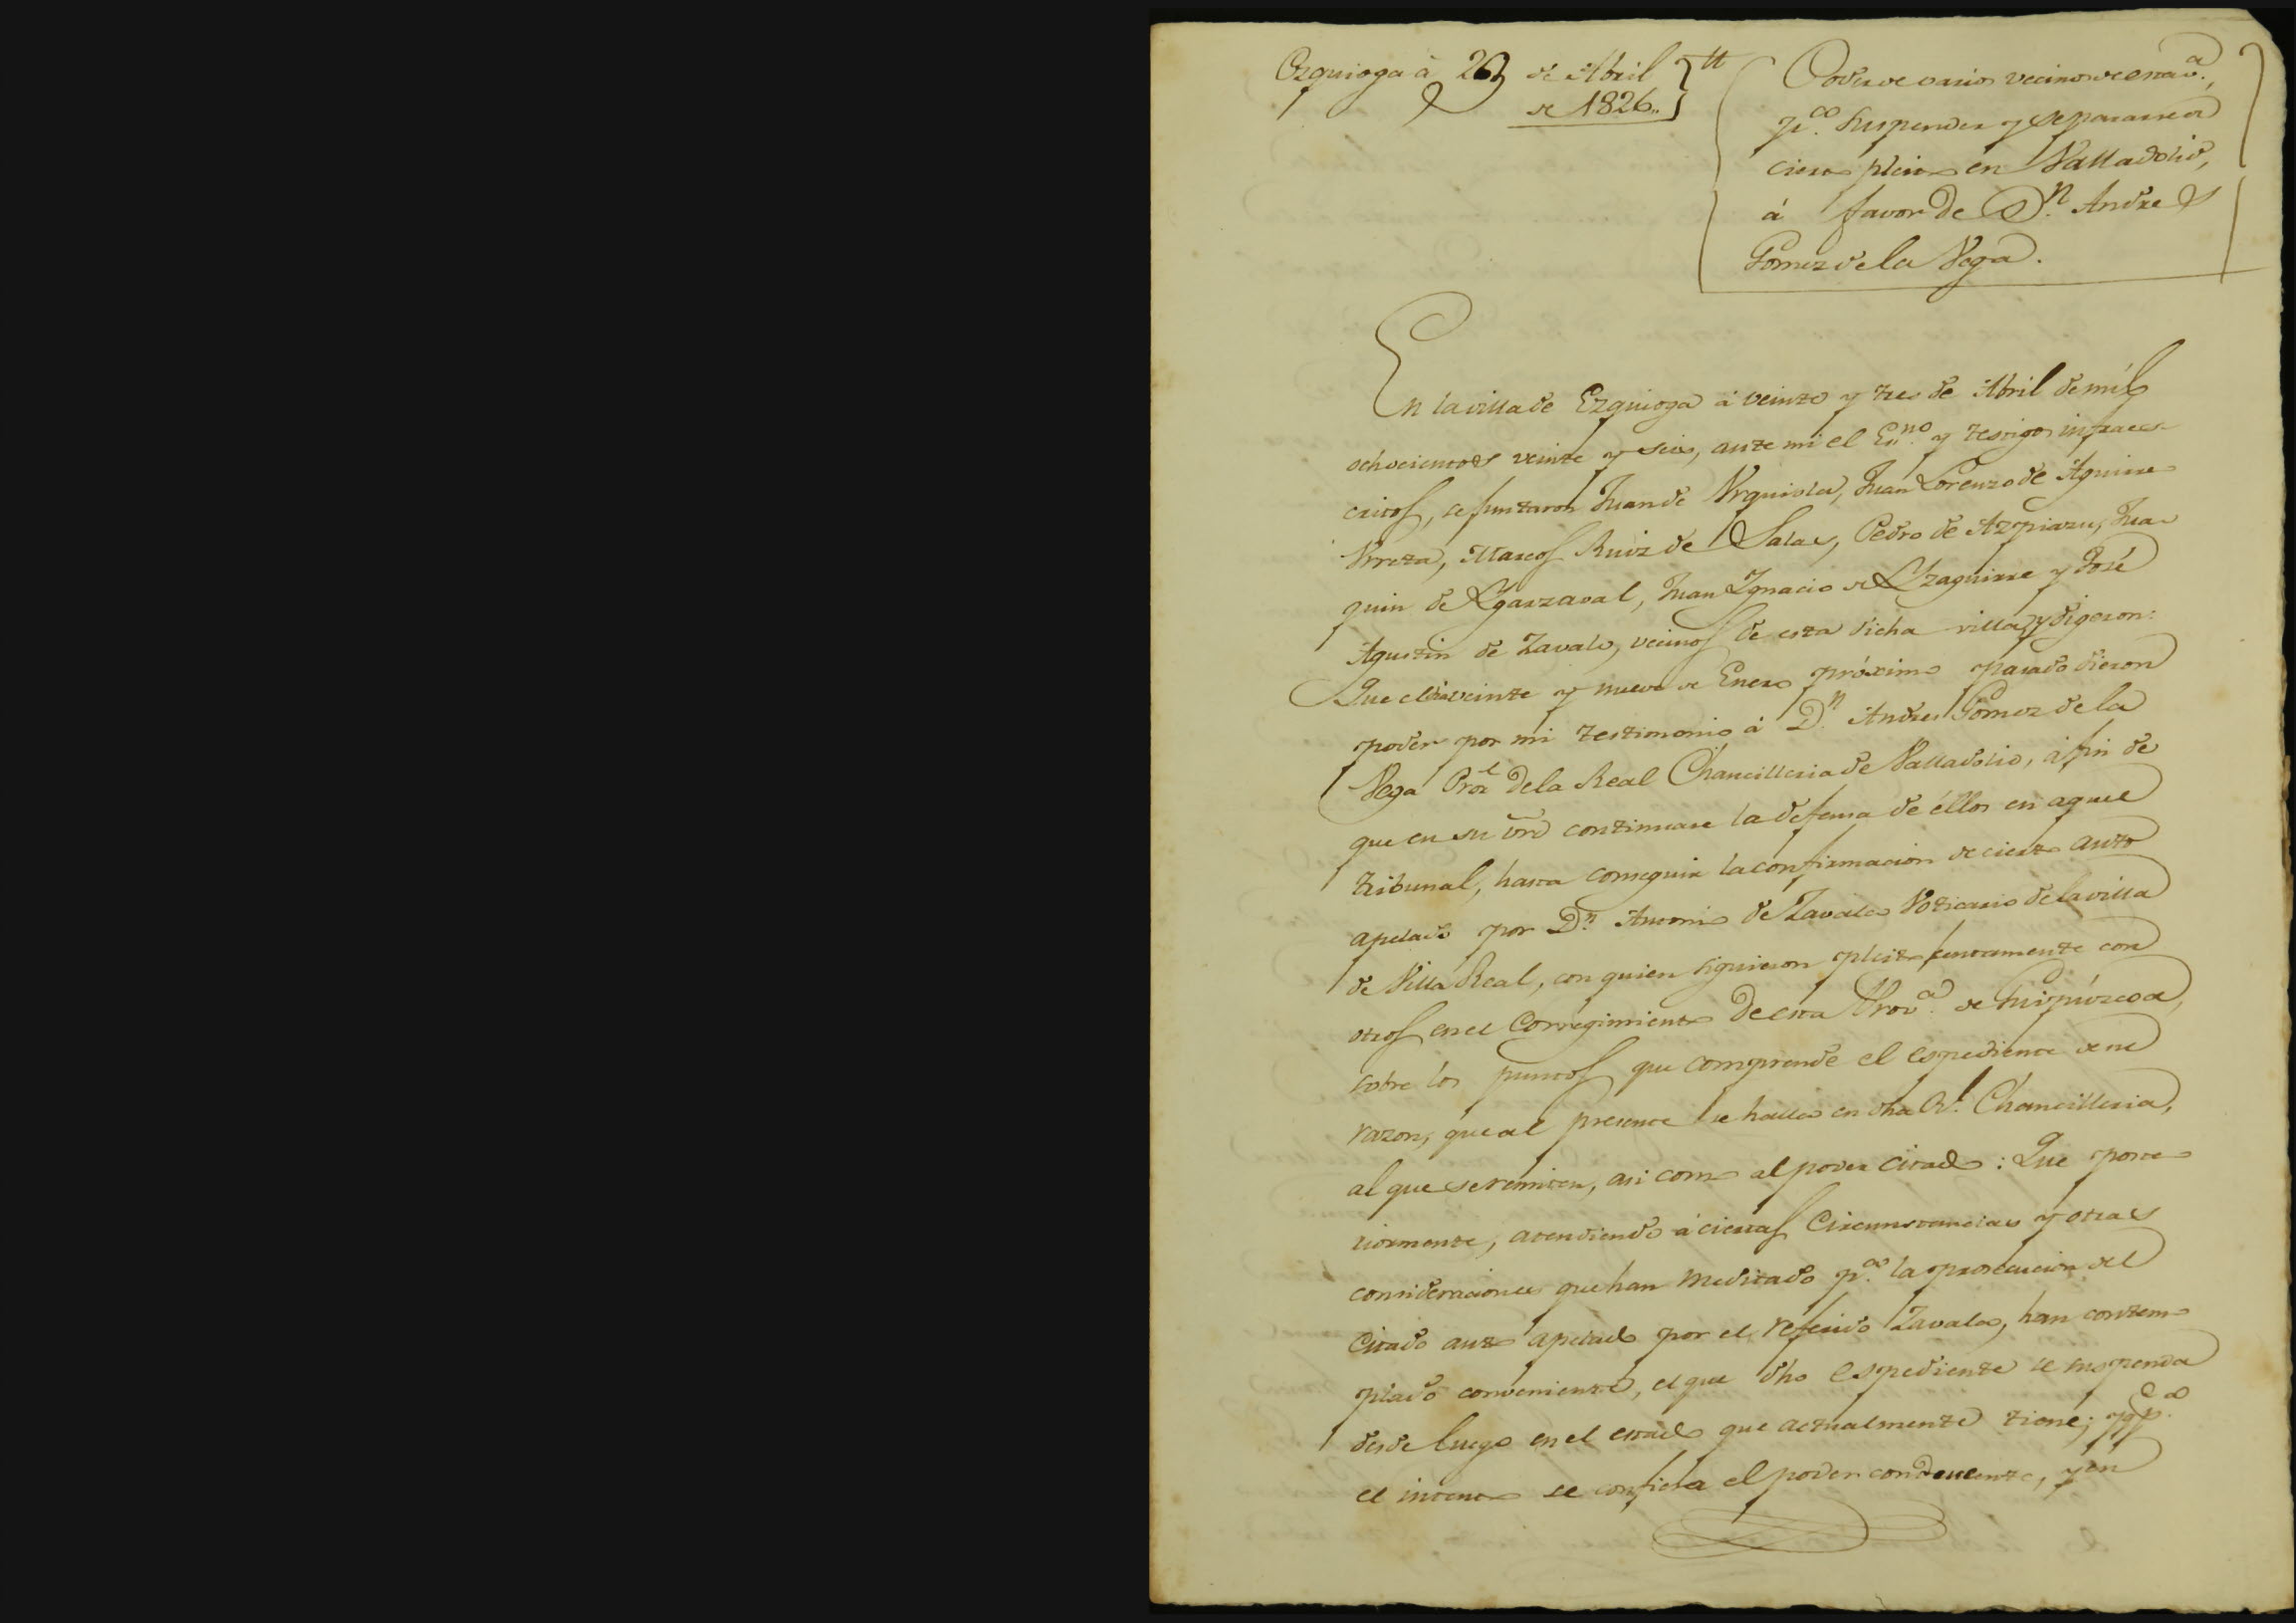 Ezquioga á 23 de Abril
de 1826..
Poder de varios vecinos de esta v.ª,
p.ª suspender y separarse de
cierto pleito en Valladolid,
á favor de D.n Andres
Gomez de la Vega.
En la villa de Ezquioga á veinte y tres de Abril de mil
ochocientos veinte y seis, ante mi el Es.no y testigos infraes-
critos, se juntaron Juan de Urquiola, Juan Lorenzo de Aguirre
Urreta, Marcos Ruiz de Salas, Pedro de Azpiazu, Joa-
quin de Ygarzaval, Juan Ygnacio de Yzaguirre y José
Agustin de Zavalo, vecinos de esta dicha villa, y digeron:
Que el dia veinte y nueve de Enero próximo pasado dieron
poder por mi testimonio á D.n Andres Gomez de la
Vega Pror de la Real Chancilleria de Valladolid, á fin de
que en su vrd continuase la defensa de éllos en aquel
tribunal, hasta conseguir la confirmacion de cierto auto
apelado por D.n Antonio de Zavala Boticario de la villa
de Villa Real, con quien siguieron pleito juntamente con
otros en el Corregimiento de esta Prov.ª de Guipúzcoa,
sobre los puntos que comprende el espediente de su
razon, que al presente se halla en dha R.l Chancilleria,
al que se remiten, asi como al poder citado: Que poste-
riormente, atendiendo á ciertas circunstancias y otras
consideraciones que han meditado p.ª la prosecucion del
citado auto apelado por el referido Zavala, han contem-
plado conveniente, el que dho espediente se suspenda
desde luego en el estado que actualmente tiene; y q.e p.ª
el intento se confiera el poder conducente, y en